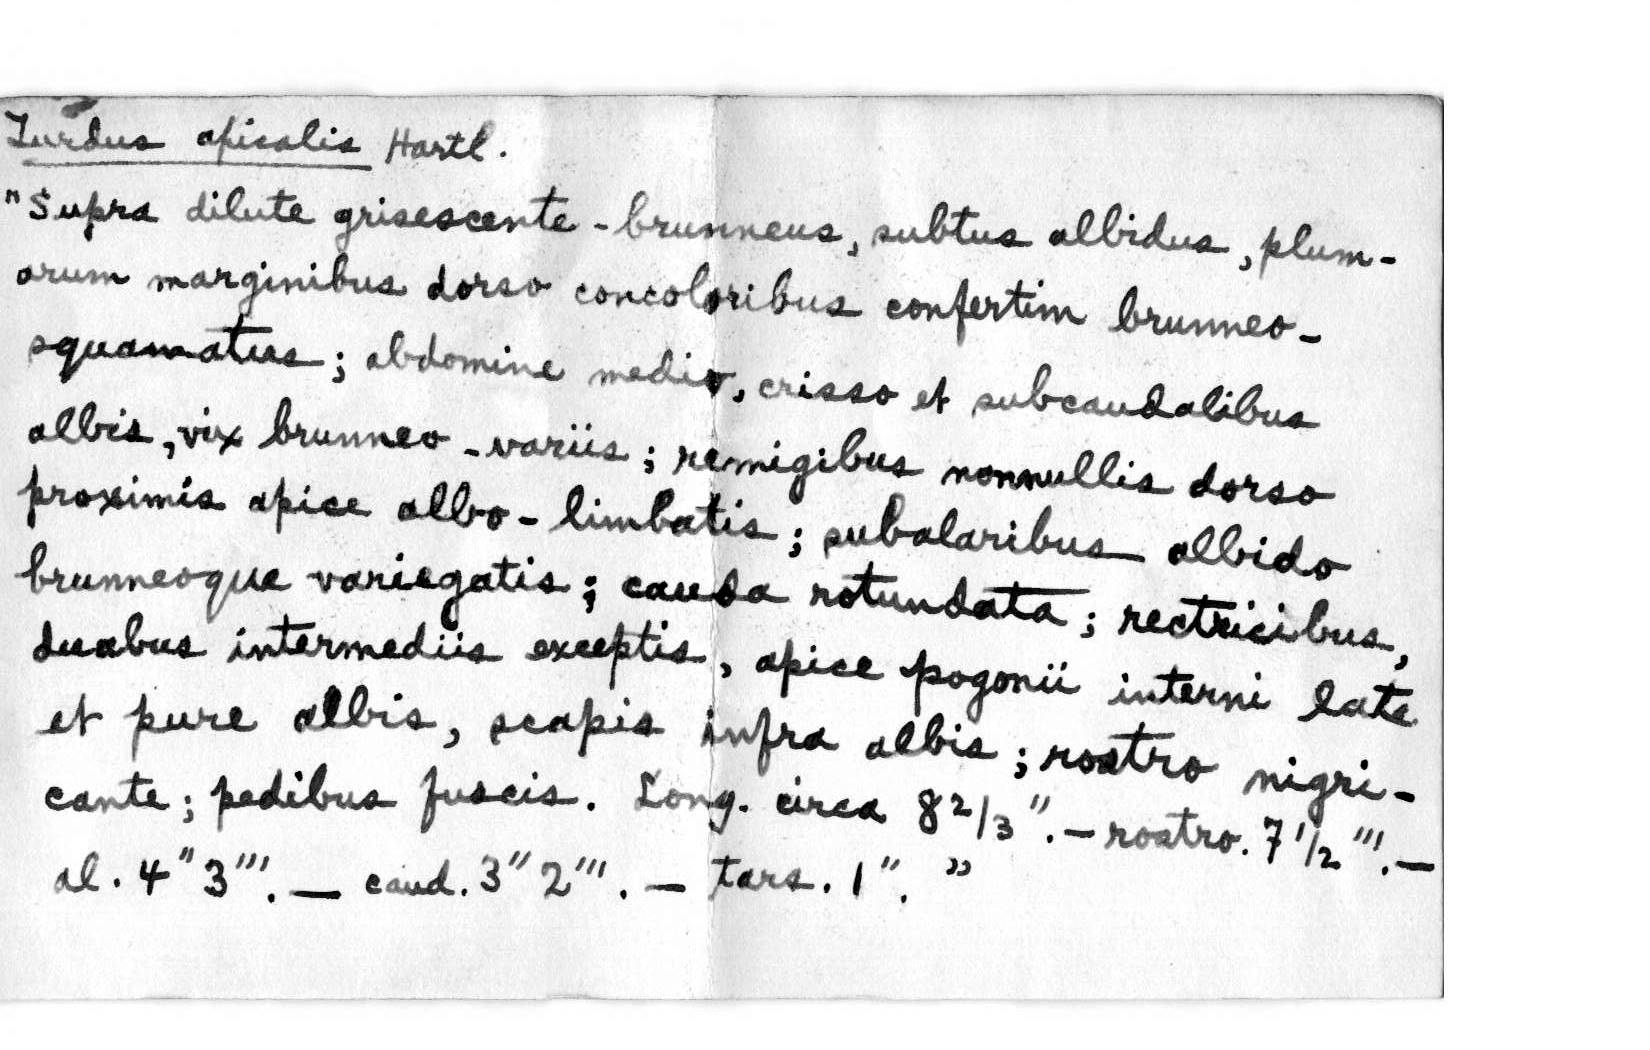 Turdus apicalis Hartl.
"Supra dilute grisescente-brunneus, subtus albidus, plum-
arum marginibus dorso concoloribus confertim brunneo-
squamatus; abdomine medio, crisso et subcaudalibus
albis, vix brunneo-variis; remigibus nonnullis dorso
proximis apice albo-limbatis; subalaribus albido
brunneoque variegatis; cauda rotundata; rectricibus,
duabus intermediis exceptis, apice pogonii interni late
et pure albis, scapis infra albis; rostro nigri-
cante; pedibus fuscis. Long. circa 8 2/3". — rostro. 7 1/2'''. —
al. 4" 3'''. — caud. 3" 2'''. — tars. 1". "